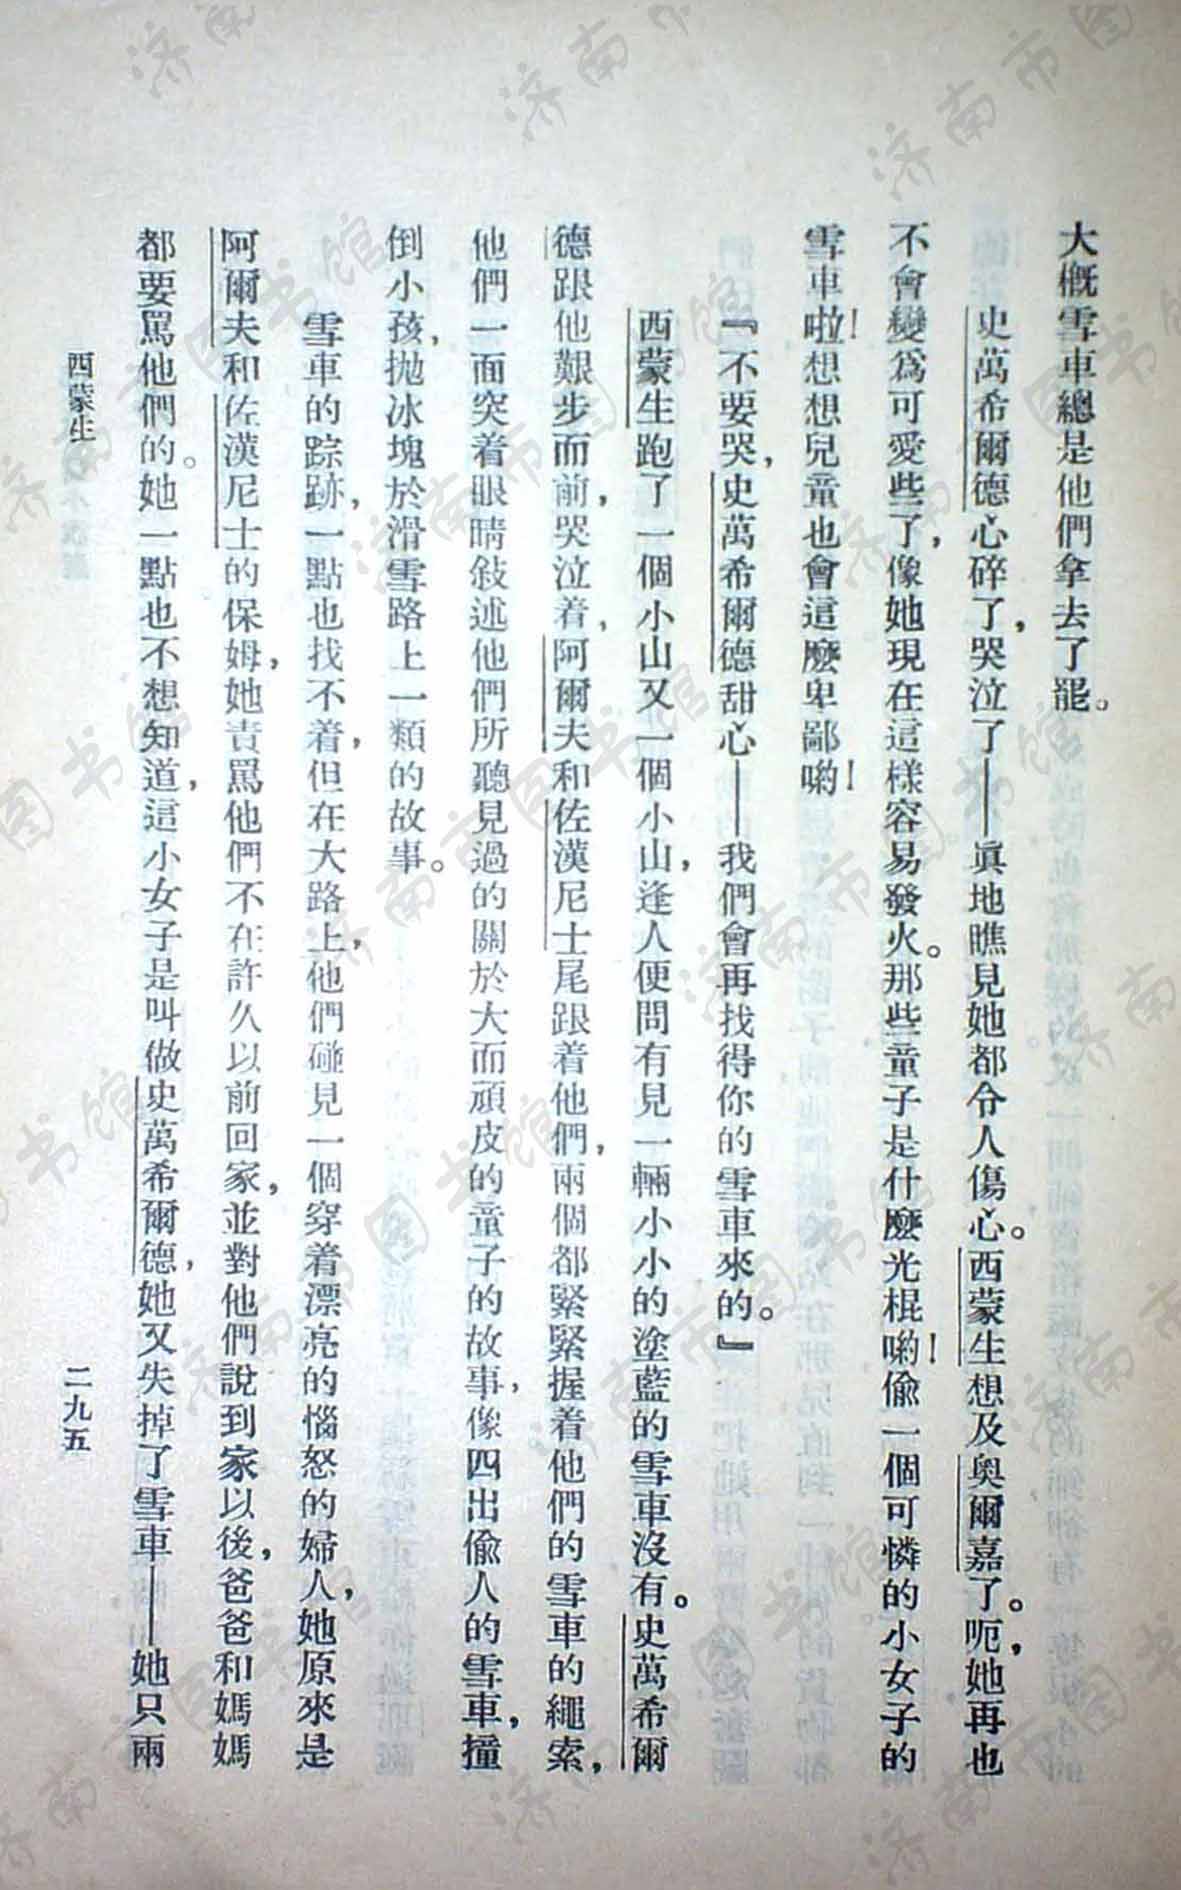 大概雪車總是他們拿去了罷。
史萬希爾德心碎了，哭泣了——眞地瞧見她都令人傷心。西蒙生想及奧爾嘉了。呃，她再也
不會變爲可愛些了，像她現在這樣容易發火。那些童子是什麼光棍喲！偸一個可憐的小女子的
雪車啦！想想兒童也會這麼卑鄙喲！
『不要哭，史萬希爾德甜心——我們會再找得你的雪車來的。』
西蒙生跑了一個小山又一個小山，逢人便問有見一輛小小的塗藍的雪車沒有。史萬希爾
德跟他艱步而前，哭泣着，阿爾夫和佐漢尼士尾跟着他們，兩個都緊緊握着他們的雪車的繩索，
他們一面突着眼睛敍述他們所聽見過的關於大而頑皮的童子的故事，像四出偸人的雪車，撞
倒小孩，拋冰塊於滑雪路上一類的故事。
雪車的踪跡，一點也找不着，但在大路上，他們碰見一個穿着漂亮的惱怒的婦人，她原來是
阿爾夫和佐漢尼士的保姆，她責罵他們不在許久以前回家，並對他們說到家以後，爸爸和媽媽
都要罵他們的。她一點也不想知道，這小女子是叫做史萬希爾德，她又失掉了雪車——她只兩
西蒙生
二九五
济南市图书馆